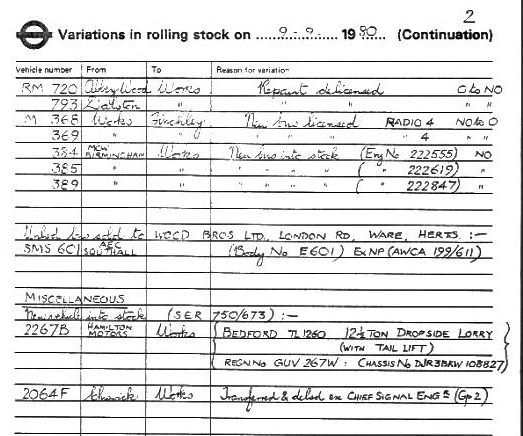 2
Variations in rolling stock on 9-9- 1980 (Continuation)
Vehicle number From To Reason for variation
RM 720 Abbey Wood Works Repaint delicensed O to NO
793 Dalston " " " " "
M 368 Works Finchley New bus licensed RADIO 4 NO to O
369 " " " " " " 4 " "
384 MCW BIRMINGHAM Works New bus into stock (Eng No 222555) NO
385 " " " " " " ( " 222619) "
389 " " " " " " ( " 222847) "
Unlicd bus sold to WOOD BROS LTD, LONDON RD, WARE, HERTS. :-
SMS 601 AEC SOUTHALL (Body No E601) Ex NP (AWCA 199/611)
MISCELLANEOUS
New vehicle into stock (SER 750/673) :-
2267B HAMILTON MOTORS Works BEDFORD TL1260 12½ TON DROPSIDE LORRY
(WITH TAIL LIFT)
REGN No GUV 267W : CHASSIS No DJR3BKW 108827
2064F Chiswick Works Transferred & delsd ex CHIEF SIGNAL ENGR (Gp 2)